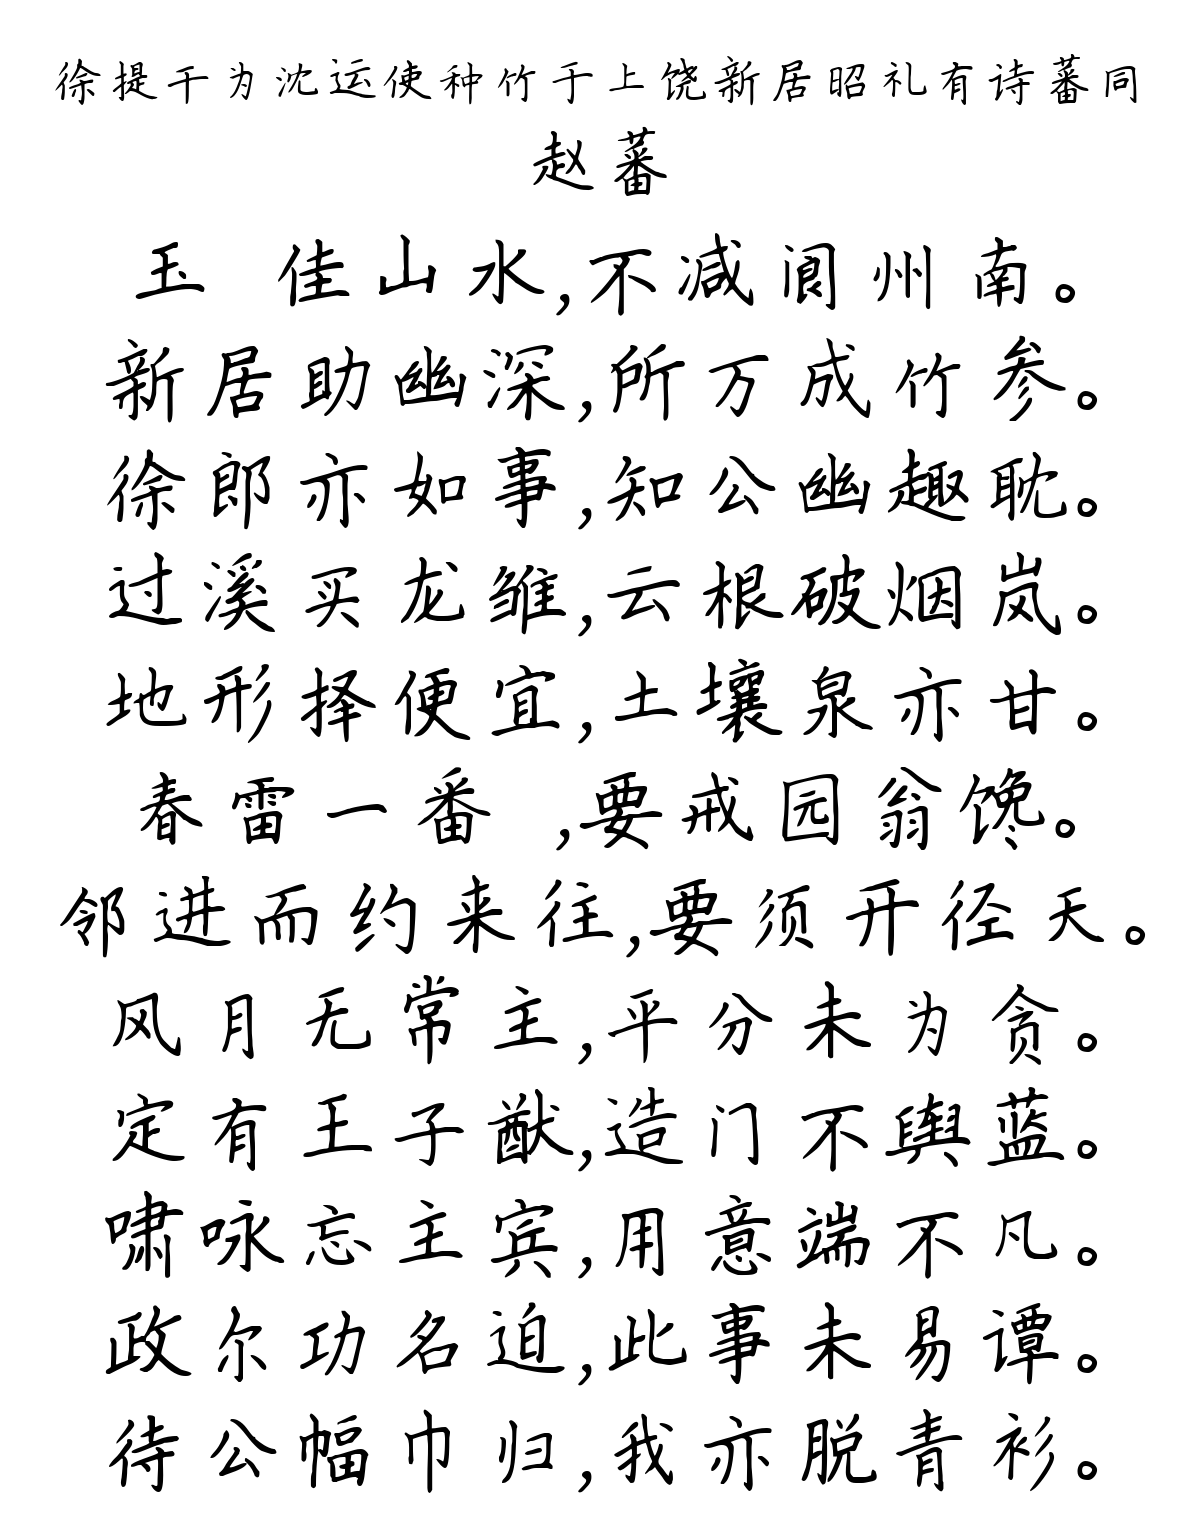 徐提干为沈运使种竹于上饶新居昭礼有诗蕃同
赵蕃
玉 佳山水,不减阆州南。
新居助幽深,所万成竹参。
徐郎亦如事,知公幽趣耽。
过溪买龙雏,云根破烟岚。
地形择便宜,土壤泉亦甘。
春雷一番 ,要戒园翁馋。
邻进而约来往,要须开径天。
风月无常主,平分未为贪。
定有王子猷,造门不舆蓝。
啸咏忘主宾,用意端不凡。
政尔功名迫,此事未易谭。
待公幅巾归,我亦脱青衫。